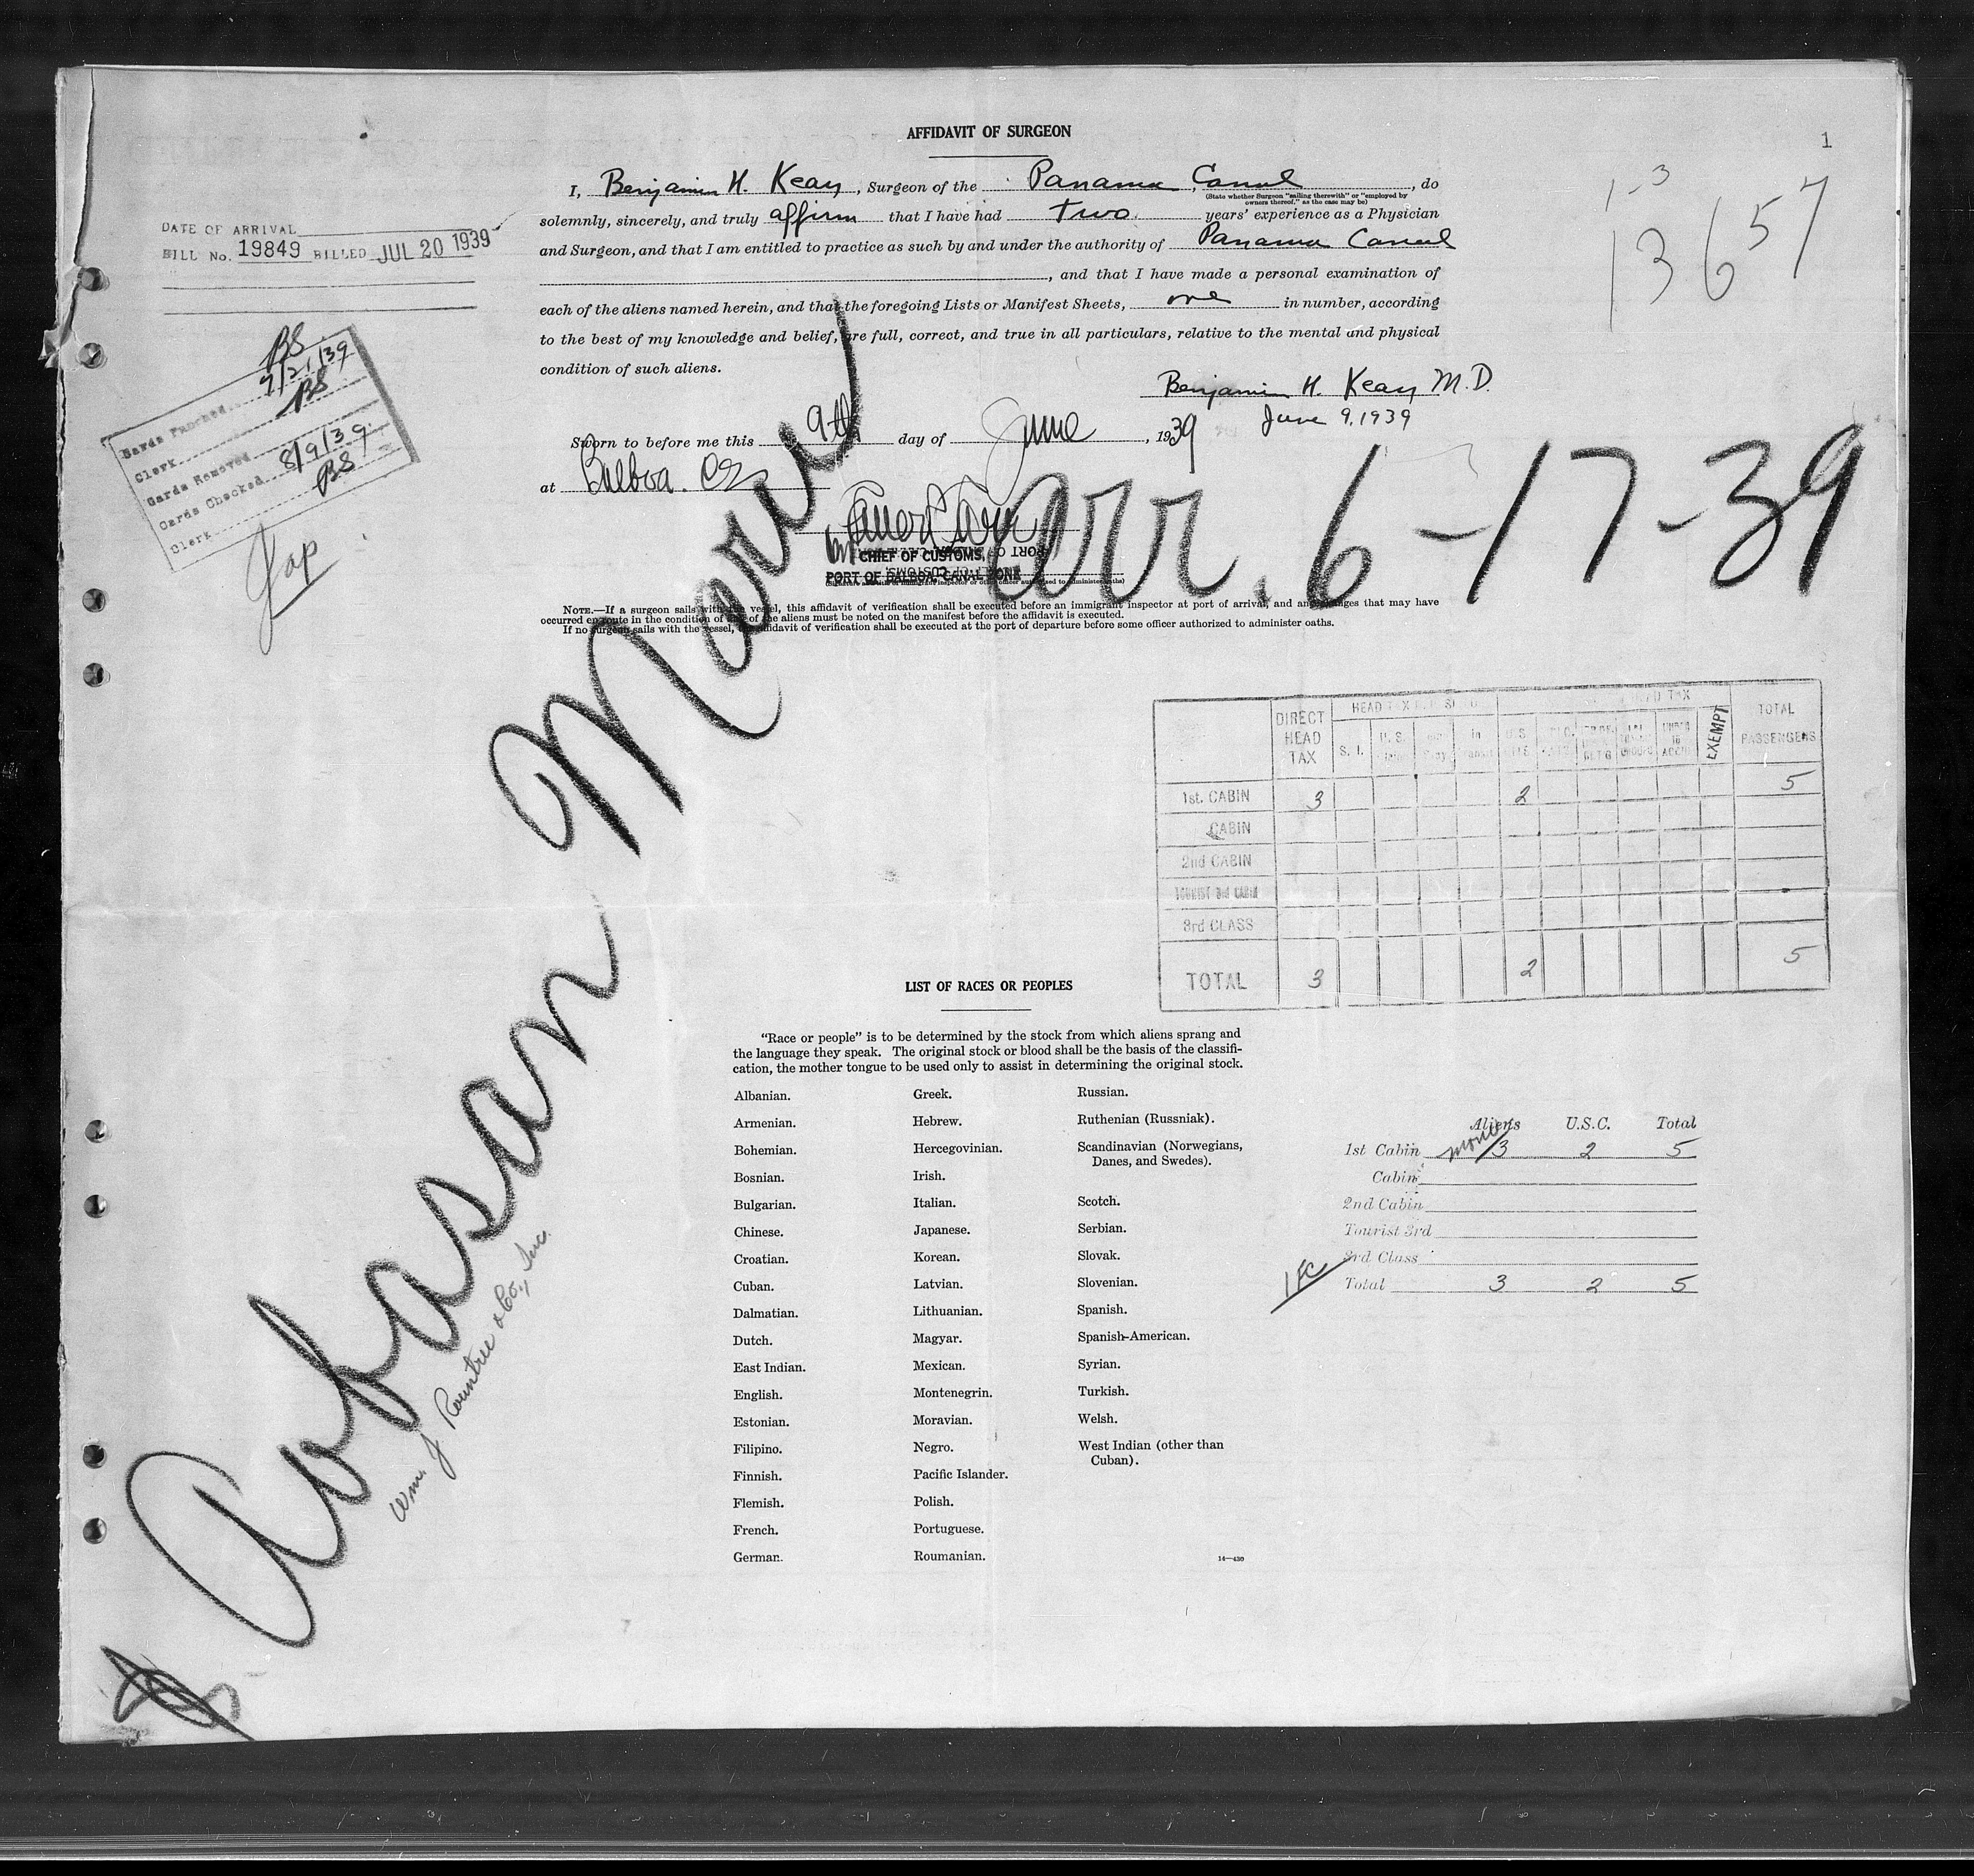 AFFIDAVIT OF SURGEON
1
1-3
13657
I, Benjamin H. Kean, Surgeon of the Panama Canal, do
(State whether Surgeon "sailing therewith" or "employed by owners thereof," as the case may be)
solemnly, sincerely, and truly affirm that I have had two years' experience as a Physician
and Surgeon, and that I am entitled to practice as such by and under the authority of Panama Canal
, and that I have made a personal examination of
each of the aliens named herein, and that the foregoing Lists or Manifest Sheets, one in number, according
to the best of my knowledge and belief, are full, correct, and true in all particulars, relative to the mental and physical
condition of such aliens.
Benjamin H. Kean M.D.
June 9, 1939
Sworn to before me this 9th day of June, 1939
at Balboa. CZ
CHIEF OF CUSTOMS,
PORT OF BALBOA, CANAL ZONE
NOTE.—If a surgeon sails with the vessel, this affidavit of verification shall be executed before an immigrant inspector at port of arrival, and any changes that may have
occurred en route in the condition of any of the aliens must be noted on the manifest before the affidavit is executed.
If no surgeon sails with the vessel, the affidavit of verification shall be executed at the port of departure before some officer authorized to administer oaths.
DATE OF ARRIVAL
BILL No. 19849 BILLED JUL 20 1939
BS
Cards Punched 7/21/39
Clerk BS
Cards Removed
Cards Checked 8/9/39
Clerk BS
Jap
Arr. 6-17-39
Maru
Wm. J. Rountree & Co., Inc.
DIRECT HEAD TAX
S. I.
EXEMPT
TOTAL PASSENGERS
1st. CABIN 3 2 5
CABIN
2nd CABIN
TOURIST 3rd CABIN
3rd CLASS
TOTAL 3 2 5
LIST OF RACES OR PEOPLES
"Race or people" is to be determined by the stock from which aliens sprang and
the language they speak. The original stock or blood shall be the basis of the classifi-
cation, the mother tongue to be used only to assist in determining the original stock.
Albanian.
Armenian.
Bohemian.
Bosnian.
Bulgarian.
Chinese.
Croatian.
Cuban.
Dalmatian.
Dutch.
East Indian.
English.
Estonian.
Filipino.
Finnish.
Flemish.
French.
German.
Greek.
Hebrew.
Hercegovinian.
Irish.
Italian.
Japanese.
Korean.
Latvian.
Lithuanian.
Magyar.
Mexican.
Montenegrin.
Moravian.
Negro.
Pacific Islander.
Polish.
Portuguese.
Roumanian.
Russian.
Ruthenian (Russniak).
Scandinavian (Norwegians,
Danes, and Swedes).
Scotch.
Serbian.
Slovak.
Slovenian.
Spanish.
Spanish-American.
Syrian.
Turkish.
Welsh.
West Indian (other than
Cuban).
14—430
Aliens U.S.C. Total
1st Cabin 3 2 5
Cabin
2nd Cabin
Tourist 3rd
3rd Class
Total 3 2 5